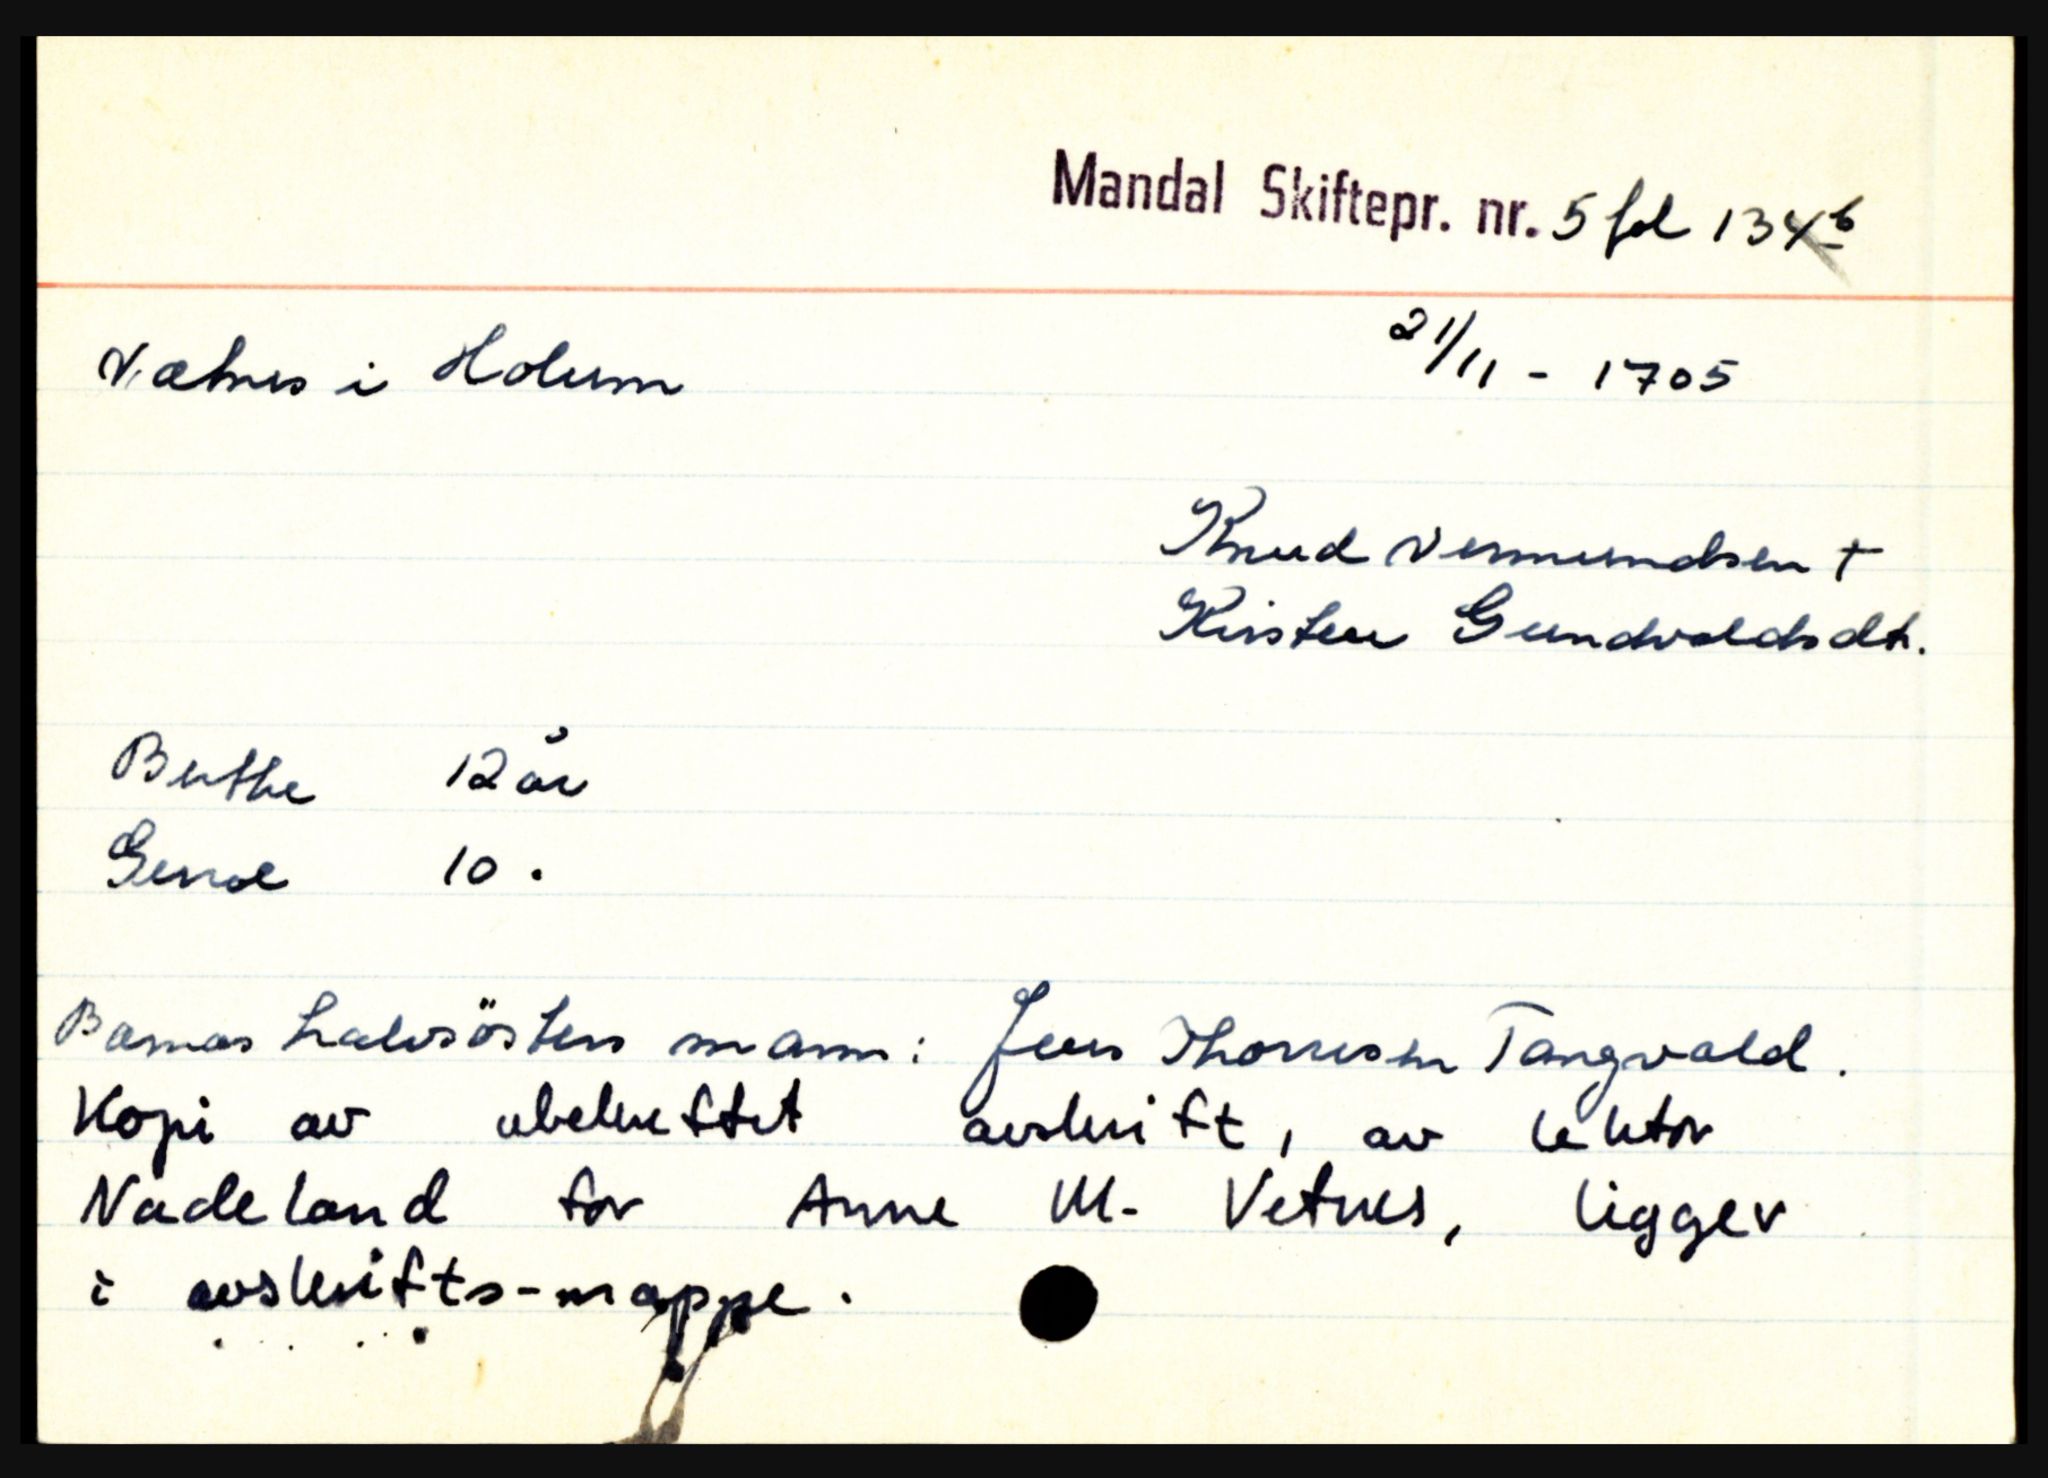 Mandal Skiftepr. nr. 5 fol 134b
Vætnes i Holum
21/11 - 1705
Knud Vermundsen +
Kirsten Gundvaldsdtr.
Berthe 12 år
Gunvol 10 .
Barnas halvsösters mann: Jens Thommesen Tangvald.
Kopi av ubekreftet avskrift, av lektor
Nadeland for Anne M. Vetnes, ligger
i avskrifts-mappe.